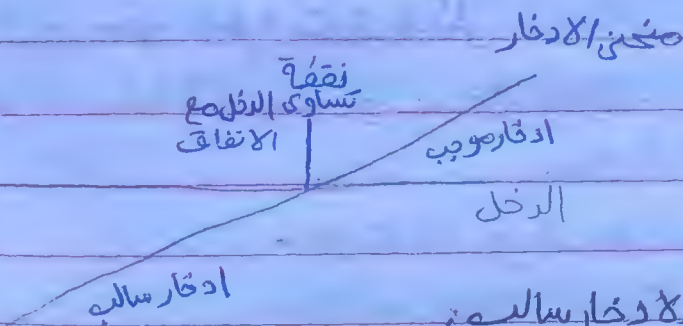 منحنى الادخار
نقطة
تساوى الدخل مع
الانفاق
ادخار موجب
الدخل
ادخار سالب
الادخار سالب: